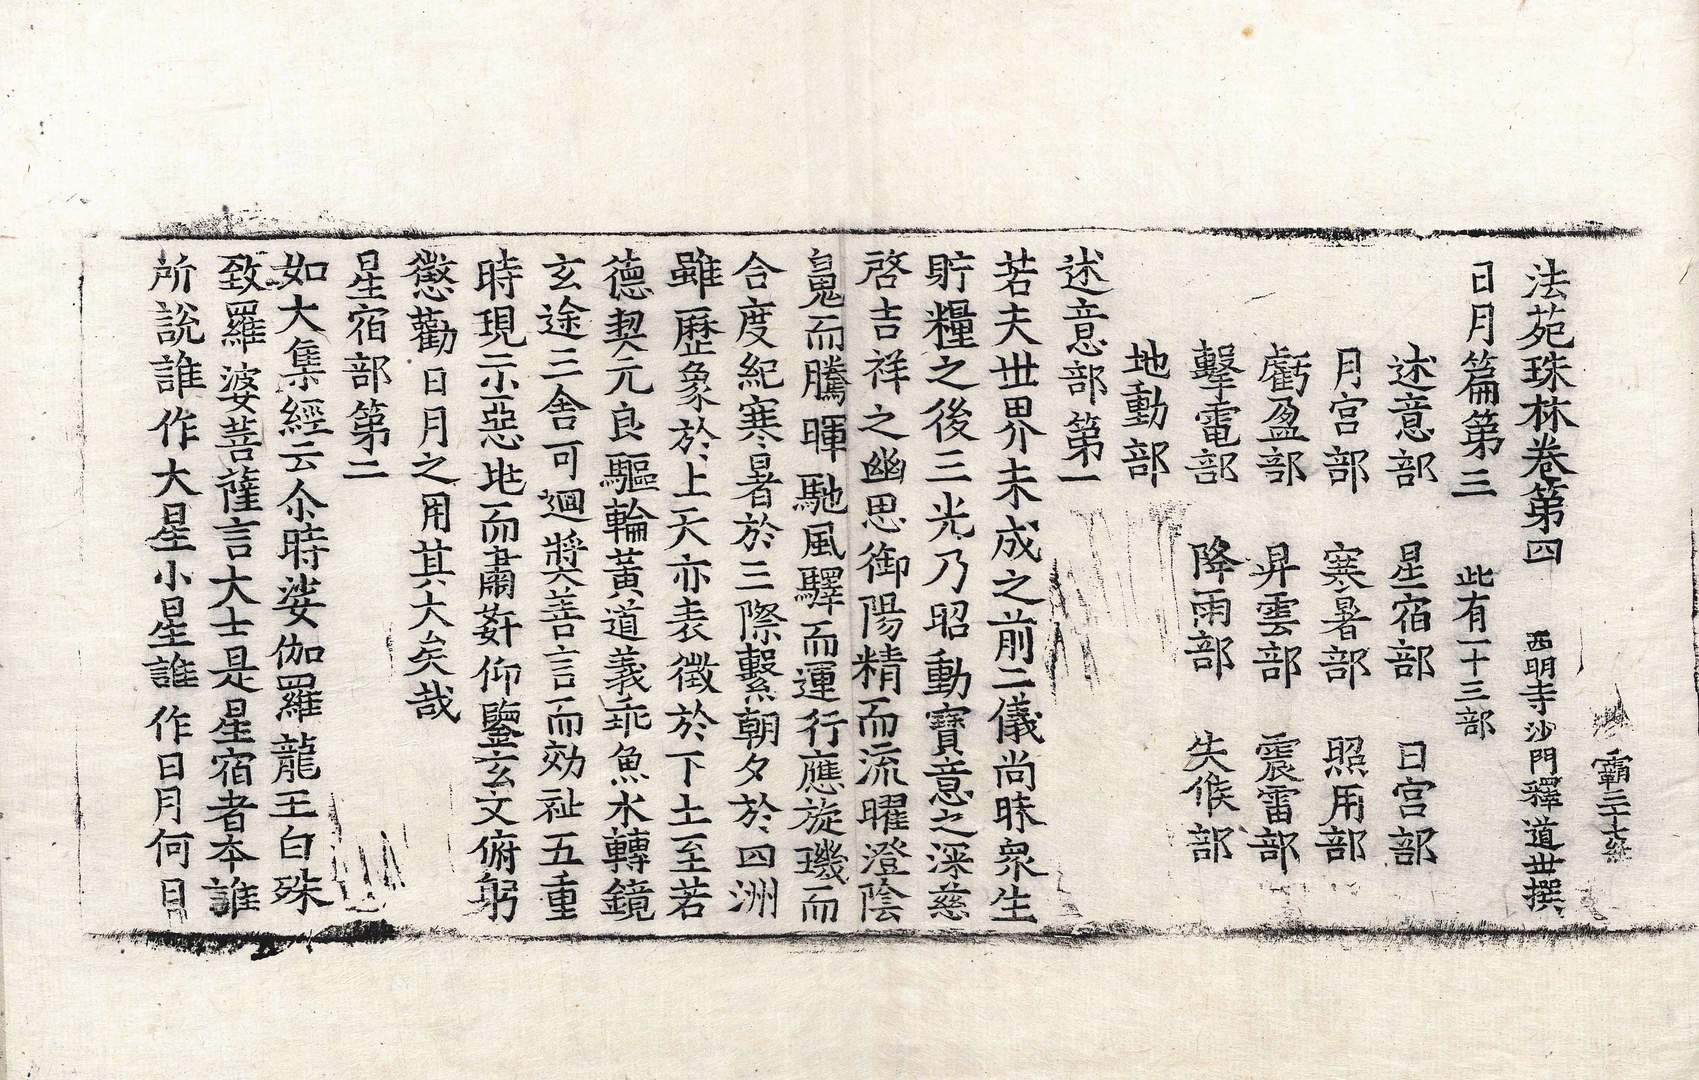 法苑珠林卷第四　西明寺沙門釋道世撰
日月篇第三　此有一十三部
述意部　星宿部　日宮部
月宮部　寒暑部　照用部
虧盈部　昇雲部　震雷部
擊電部　降雨部　失候部
地動部
述意部第一
若夫世界未成之前二儀尚昧衆生
貯糧之後三光乃昭動寶意之深慈
啓吉祥之幽思御陽精而流曜澄陰
䰟而騰暉馳風驛而運行應旋璣而
合度紀寒暑於三際繫朝夕於四洲
雖歷象於上天亦表徵於下土至若
德契元良驅輪黃道義乖魚水轉鏡
玄途三舍可迴奬善言而効祉五重
時現示惡地而肅姧仰鑒玄文俯躬
懲勸日月之用其大矣哉
星宿部第二
如大集經云尒時娑伽羅龍王白殊
致羅婆菩薩言大士是星宿者本誰
所說誰作大星小星誰作日月何日